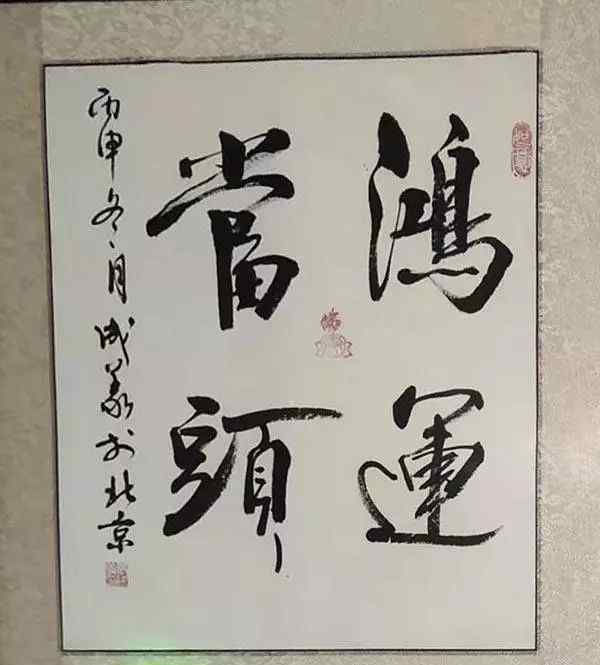 鴻運
當頭
丙申冬月成義书北京